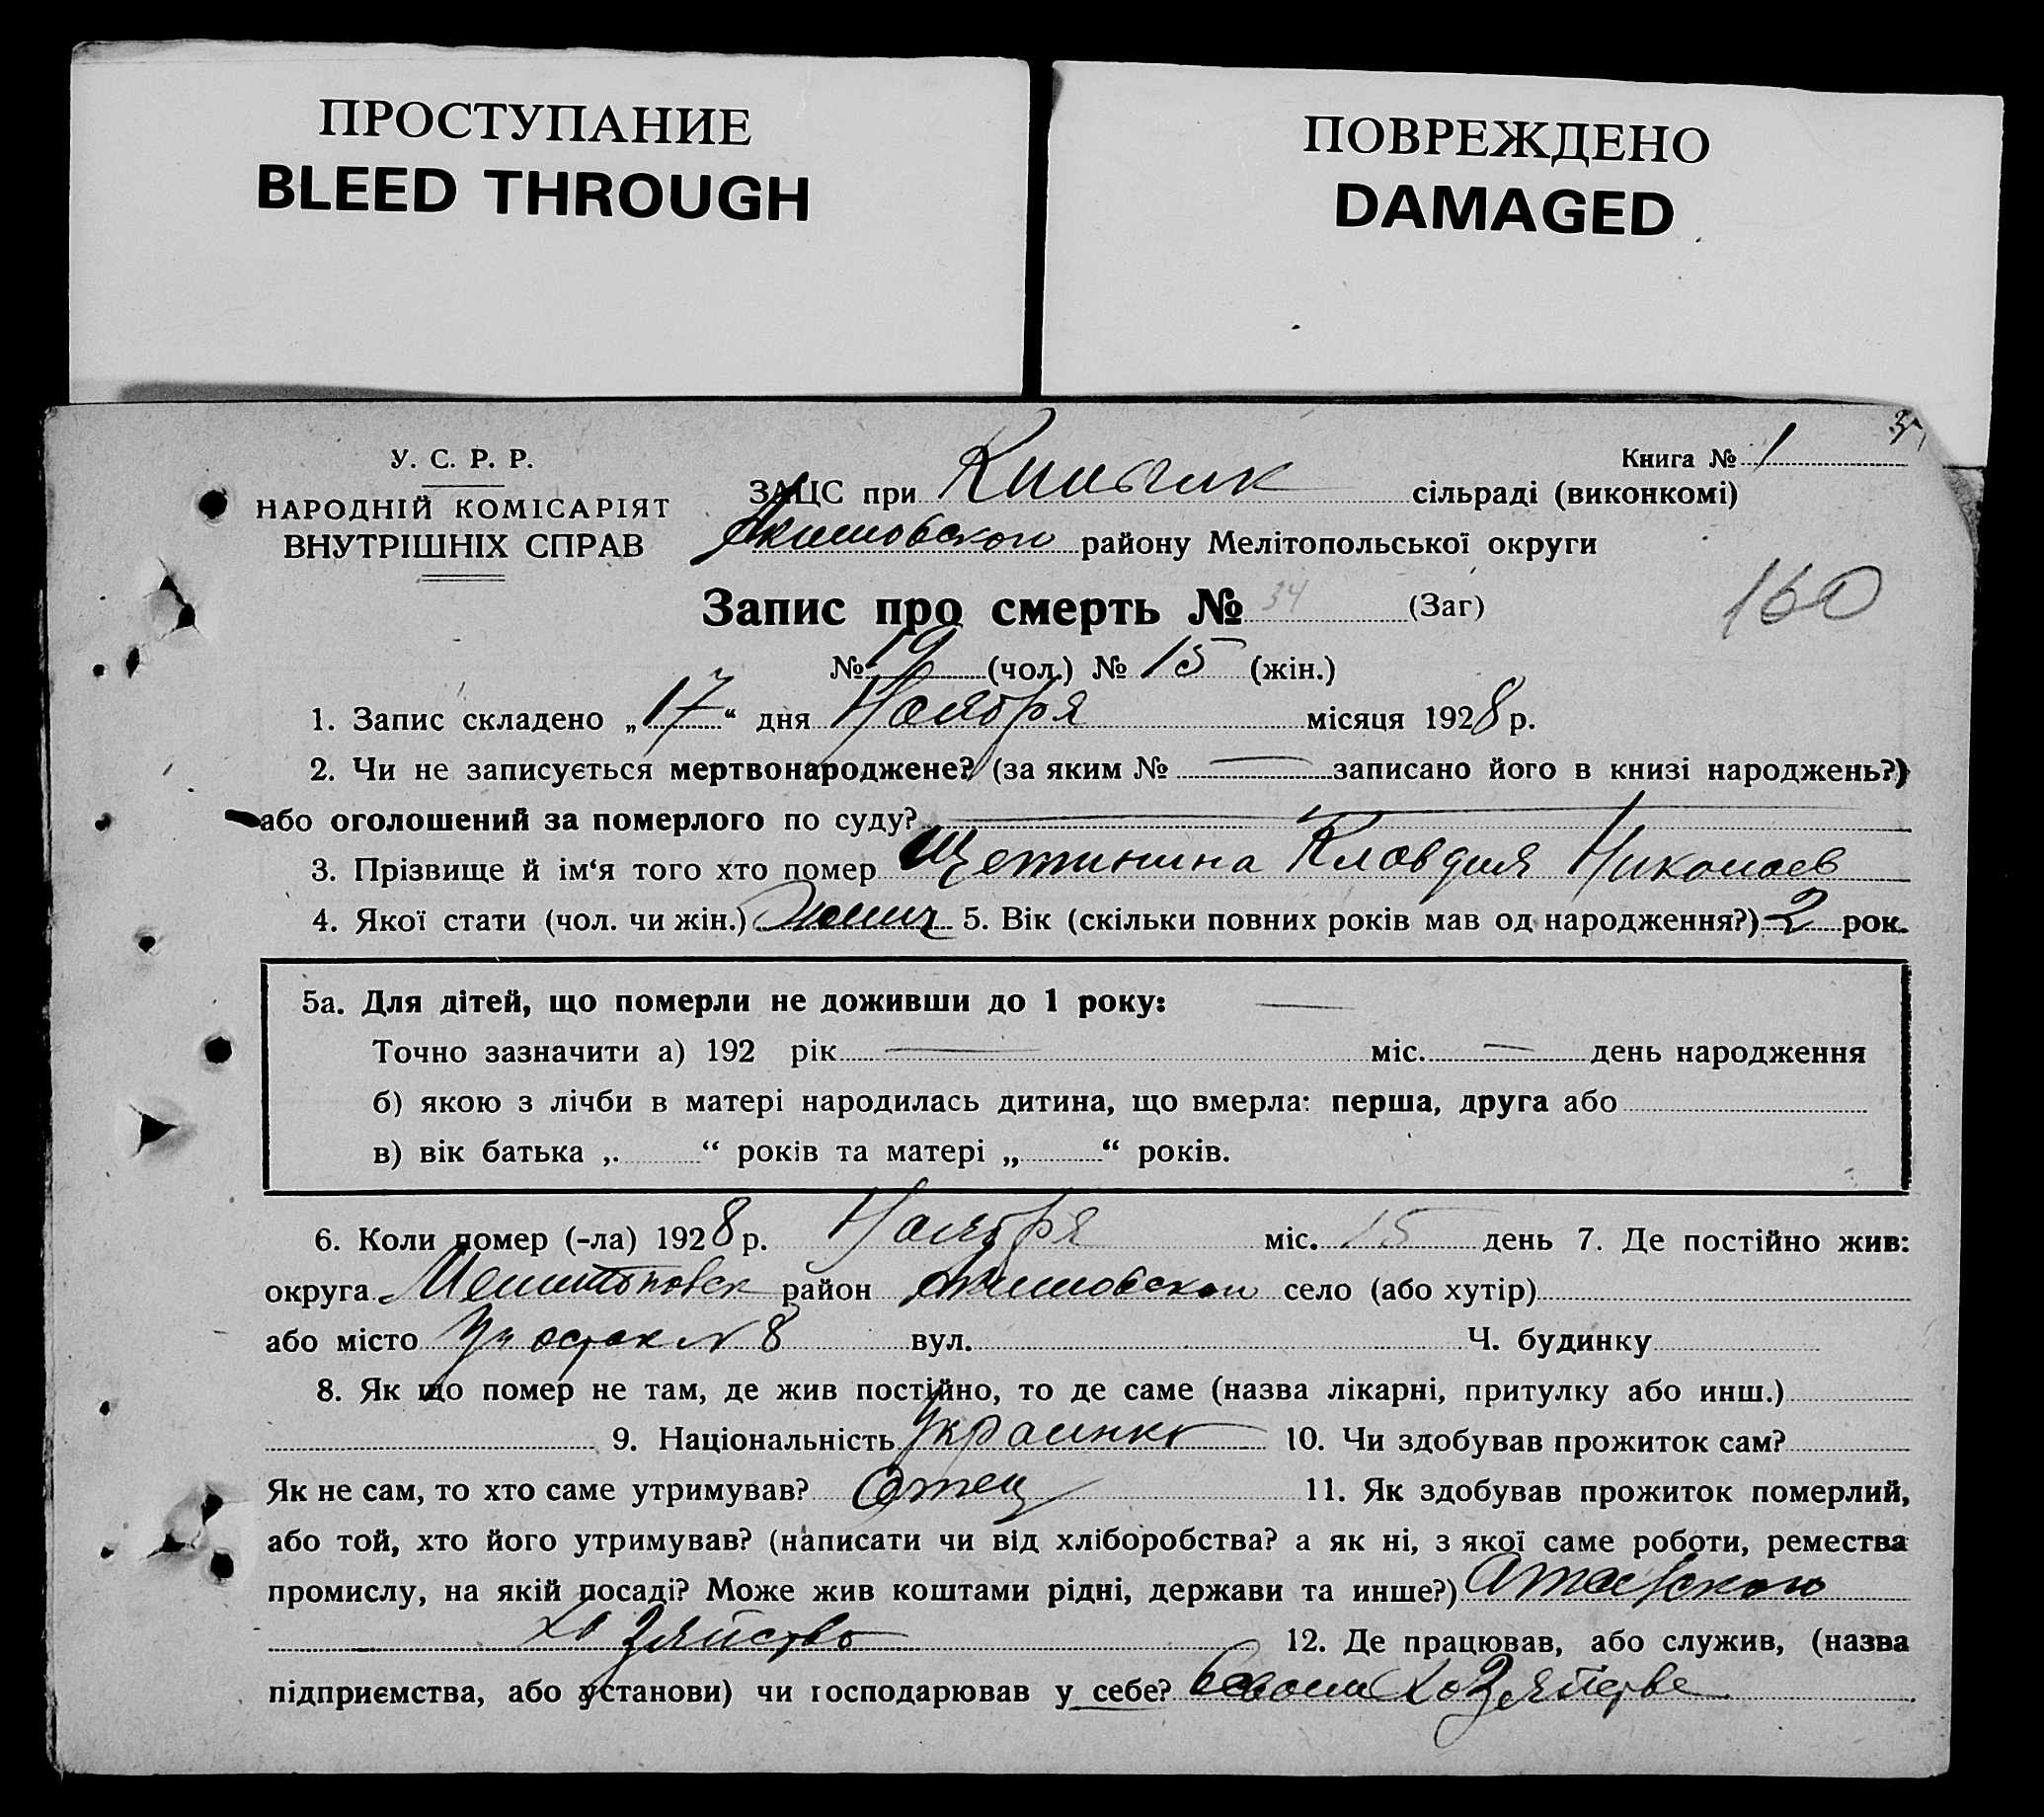 ПРОСТУПАНИЕ
BLEED THROUGH
ПОВРЕЖДЕНО
DAMAGED
У. С. Р. Р.
НАРОДНІЙ КОМІСАРІЯТ
ВНУТРІШНІХ СПРАВ
Книга № 1
ЗАЦС при сільраді (виконкомі)
Акимовского району Мелітопольської округи
160
Запис про смерть № 34 (Заг)
№ 19 (чол.) № 15 (жін.)
1. Запис складено „17“ дня Ноября місяця 1928 р.
2. Чи не записується мертвонароджене? (за яким № — записано його в книзі народжень?)
або оголошений за померлого по суду? —
3. Прізвище й ім‘я того хто помер Щетинина Клавдия Николаев
4. Якої стати (чол. чи жін.) 5. Вік (скільки повних років мав од народження?) 2 рок.
5а. Для дітей, що померли не доживши до 1 року: —
Точно зазначити а) 192 рік — міс. — день народження
б) якою з лічби в матері народилась дитина, що вмерла: перша, друга або
в) вік батька „ “ років та матері „ “ років.
6. Коли помер (-ла) 1928 р. Ноября міс. 15 день 7. Де постійно жив:
округа Мелитоповск район Акимовского село (або хутір)
або місто Участок N 8 вул. Ч. будинку
8. Як що помер не там, де жив постійно, то де саме (назва лікарні, притулку або инш.)
9. Національність Украинка 10. Чи здобував прожиток сам?
Як не сам, то хто саме утримував? Отец 11. Як здобував прожиток померлий,
або той, хто його утримував? (написати чи від хліборобства? а як ні, з якої саме роботи, ремества
промислу, на якій посаді? Може жив коштами рідні, держави та инше?)
хозяйство 12. Де працював, або служив, (назва
підприємства, або установи) чи господарював у себе? в своем хозяйстве